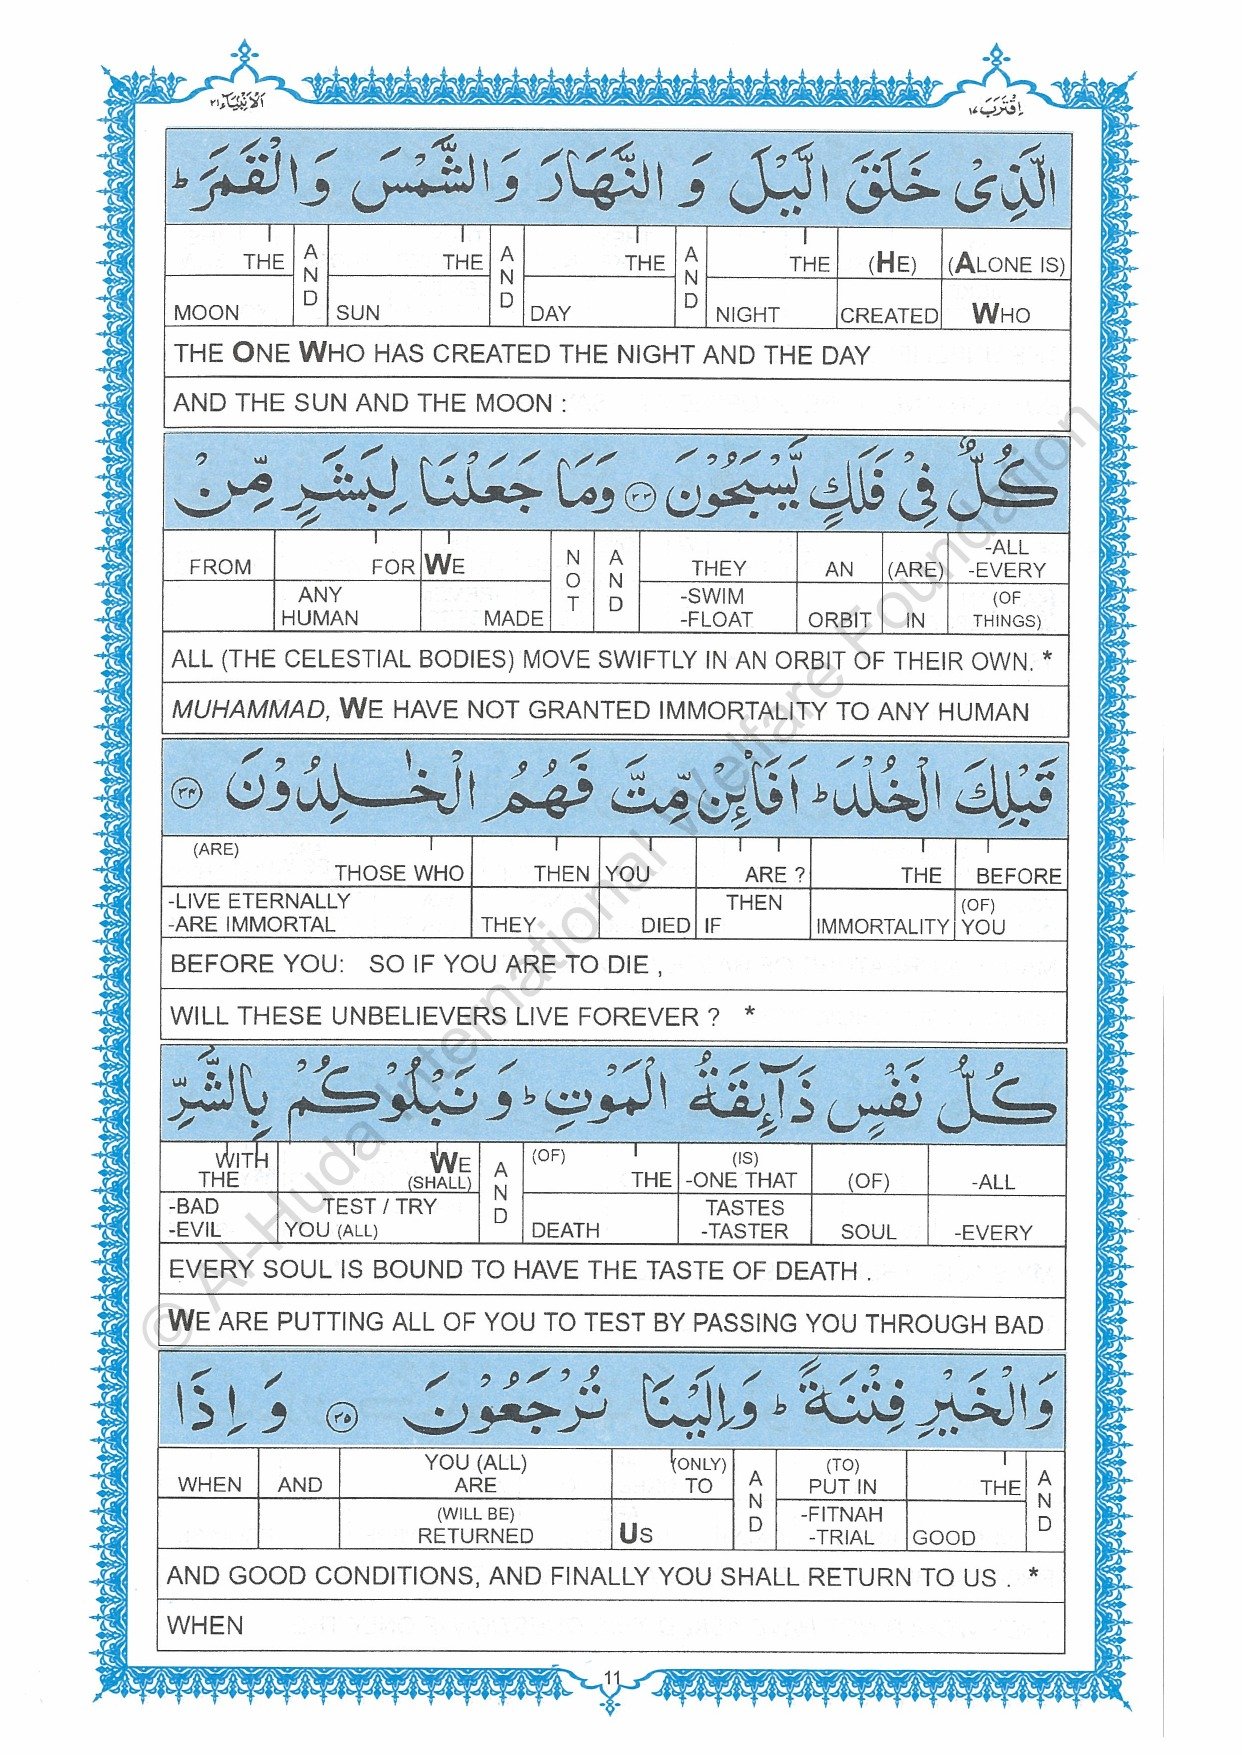 الانبیاء ۲۱
اقترب ۱۷
الَّذِىْ خَلَقَ الَّيْلَ وَ النَّهَارَ وَالشَّمْسَ وَ الْقَمَرَ ؕ
THE AND THE AND THE AND THE (HE) (ALONE IS)
MOON SUN DAY NIGHT CREATED WHO
THE ONE WHO HAS CREATED THE NIGHT AND THE DAY
AND THE SUN AND THE MOON :
كُلٌّ فِىْ فَلَكٍ يَّسْبَحُوْنَ ۳۳ وَمَا جَعَلْنَا لِبَشَرٍ مِّنْ
FROM FOR WE NOT AND THEY AN (ARE) -ALL -EVERY
ANY HUMAN MADE -SWIM -FLOAT ORBIT IN (OF THINGS)
ALL (THE CELESTIAL BODIES) MOVE SWIFTLY IN AN ORBIT OF THEIR OWN. *
MUHAMMAD, WE HAVE NOT GRANTED IMMORTALITY TO ANY HUMAN
قَبْلِكَ الْخُلْدَ ؕ اَفَا۟ئِنْ مِّتَّ فَهُمُ الْخٰلِدُوْنَ ۳۴
(ARE) THOSE WHO THEN YOU ARE ? THE BEFORE
-LIVE ETERNALLY -ARE IMMORTAL THEY DIED THEN IF IMMORTALITY (OF) YOU
BEFORE YOU: SO IF YOU ARE TO DIE ,
WILL THESE UNBELIEVERS LIVE FOREVER ? *
كُلُّ نَفْسٍ ذَآئِقَةُ الْمَوْتِ ؕ وَ نَبْلُوْكُمْ بِالشَّرِّ
WITH THE WE (SHALL) AND (OF) THE (IS) -ONE THAT (OF) -ALL
-BAD -EVIL TEST / TRY YOU (ALL) DEATH TASTES -TASTER SOUL -EVERY
EVERY SOUL IS BOUND TO HAVE THE TASTE OF DEATH .
WE ARE PUTTING ALL OF YOU TO TEST BY PASSING YOU THROUGH BAD
وَالْخَيْرِ فِتْنَةً ؕ وَاِلَيْنَا تُرْجَعُوْنَ ۳۵ وَ اِذَا
WHEN AND YOU (ALL) ARE (ONLY) TO AND (TO) PUT IN THE AND
(WILL BE) RETURNED US -FITNAH -TRIAL GOOD
AND GOOD CONDITIONS, AND FINALLY YOU SHALL RETURN TO US . *
WHEN
11
© Al-Huda International Welfare Foundation